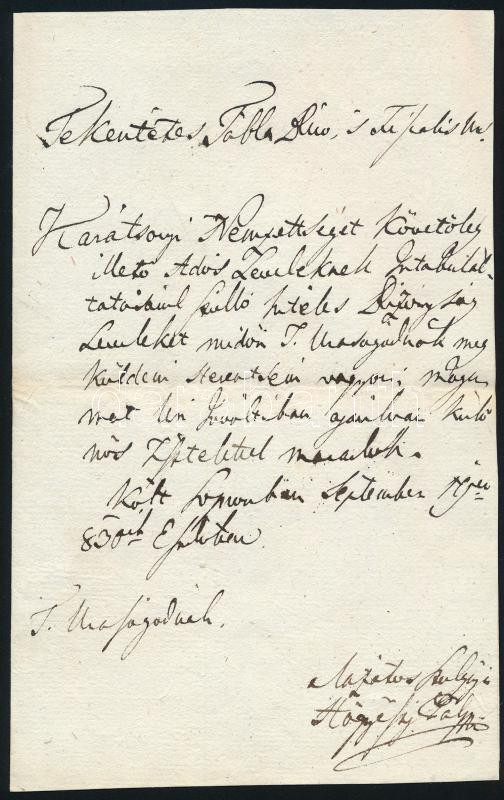 Tekéntetes Tábla Biro, és Fiscalis Ur.
Karátsonyi Nemzettséget Követöleg
illető Adós Leveleknek Intabulál-
tatásárul szólló hiteles Bizonyság
Leveleket midőn T. Uraságodnak meg
küldeni szerentsém vagyon; maga-
mat Uri Favoltában ajánlva külö
nös Tisztelettel maradok.
Költ Sopronban September
830ik Esztben
T. Uraságodnak.
alázatos szolgája
Hőgyészy Pál